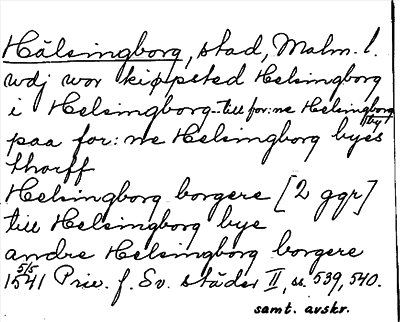 Hälsingborg, stad, Malm. l.
wdj wor kiøpsted Helsingborg
i Helsingborg - till for:ne Helsingborg by
paa for:ne Helsingborg byes
thorff
Helsingborg borgere [2 ggr]
till Helsingborg bye
andre Helsingborg borgere
1541 5/5 Priv. f. Sv. städer II, ss. 539, 540.
samt. avskr.